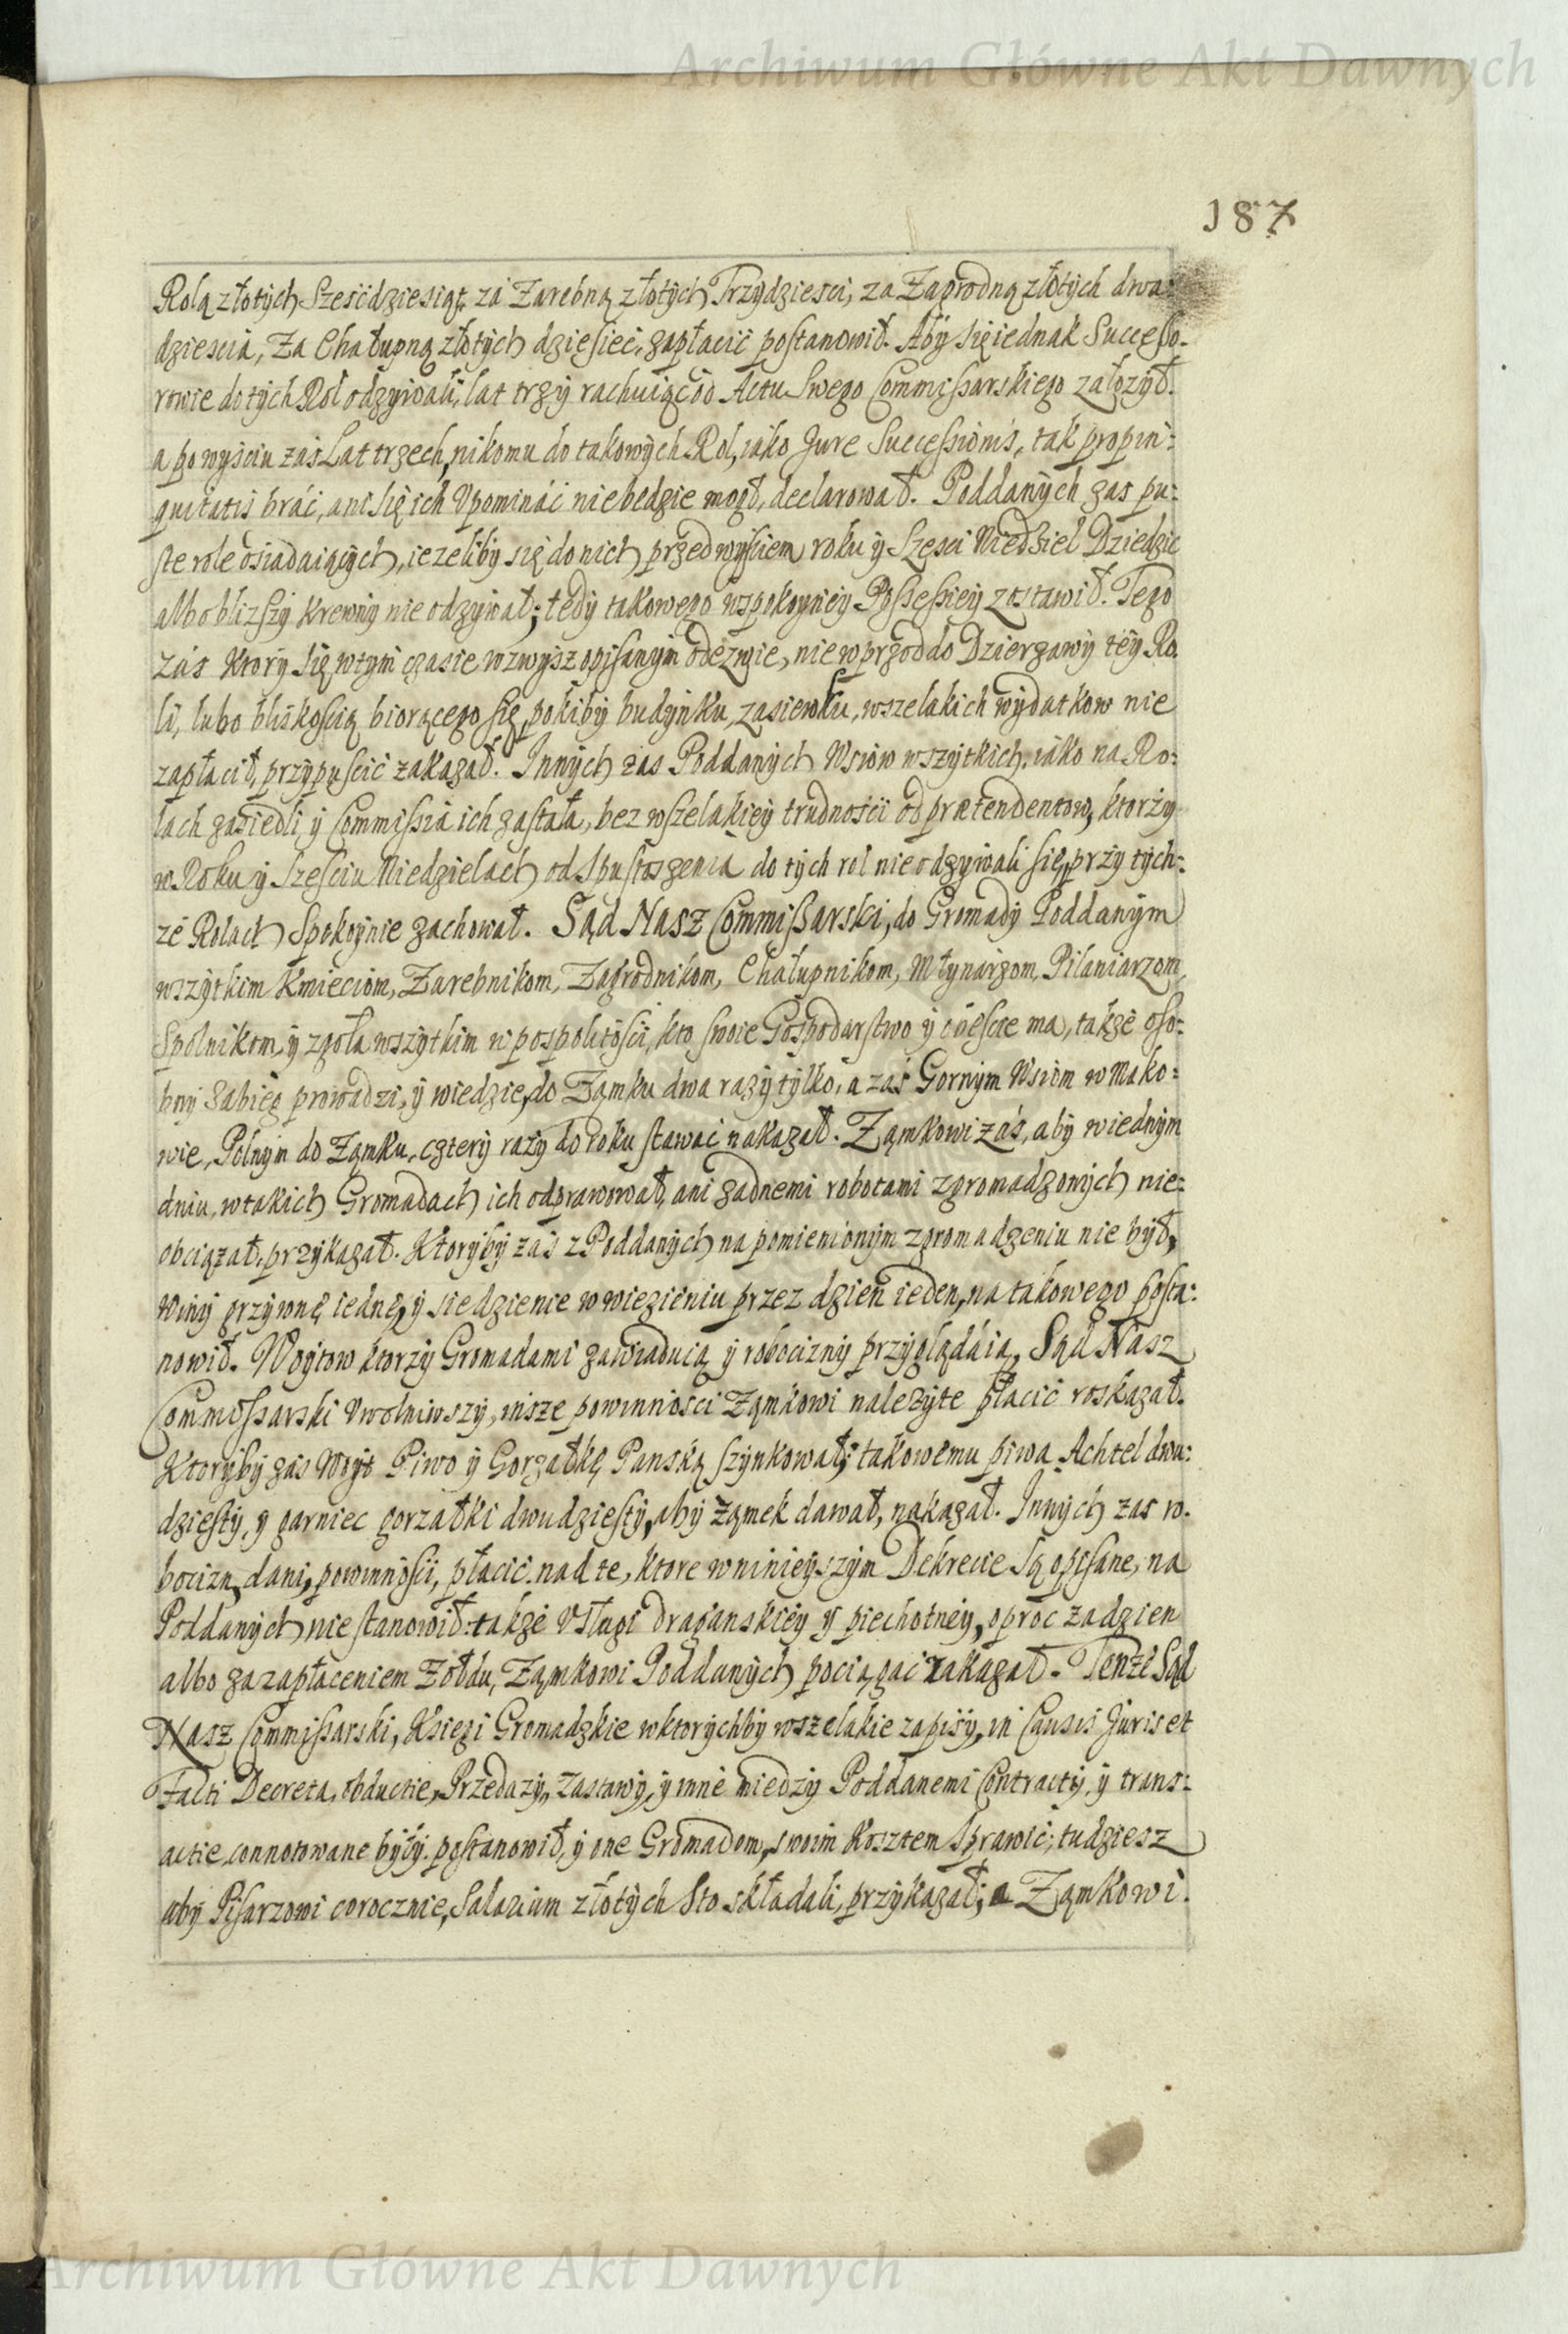 Archiwum Główne Akt Dawnych
187
Rolą złotych Sześcdziesiąt, za Zarebną złotych Trzydziesci, za Zagrodną złotych dwa:
dziescia, Za Chałupną złotych dziesiec, zapłacić postanowił. Aby się iednak Successo-
rowie do tych Rol odzywali, lat trzy rachuiąc od Actu Swego Commissarskiego założył.
a po wysciu zas Lat trzech, nikomu do takowych Rol, iako Jure Successionis, tak propin:
quitatis brać, ani się ich Upomináć niebedzie mogł, declarował. Poddanych zas pu:
ste role osiadaiących, iezeliby się do nich przed wysciem roku y Szesci Niedziel Dziedzic
albo blizszy Krewny nie odzywał; tedy takowego wspokoyney Possessiey zostawił. Tego
zás Ktory się wtym czasie wzwysz opisanym odezwie, nie wprzod do Dzierzawy tey Ro
li, lubo bliskoscią biorącego się, pokiby budynku, zasiewku, wszelakich wydatkow nie
zapłacił, przypuscić zakazał. Innych zas Poddanych Wsiow wszytkich, iáko na Ro:
lach zasiedli y Commissia ich zastała, bez wszelakiey trudności od prætendentow, ktorzy
w Roku y Szesciu Niedzielach od Spustoszenia do tych rol nie odzywali się, przy tych:
ze Rolach Spokoynie zachował. Sąd Nasz Commissarski, do Gromady Poddanym
wszytkim Kmieciom, Zarebnikom, Zagrodnikom, Chałupnikom, Młynarzom, Pilaniarzom,
Spolnikom, y zgoła wszytkim w pospolitości, kto swoie Gospodarstwo y częscie ma, także oso:
bny Zabieg prowadzi, y wiedzie, do Zamku dwa razy tylko, a zaś Gornym Wsiom w Mako:
wie, Polnym do Ządmku, cztery razy do roku stawać nakazał. Ządmkowi zás, aby wiednym
dniu, wtakich Gromadach ich odprawował, ani zadnemi robotami zgromadzonych nie:
obciązał, przykazał. Ktoryby zas z Poddanych na pomienionym zgromadzeniu nie był,
Winy grzywnę iednę, y siedzienie w wiezieniu przez dzien ieden, na takowego posta:
nowił. Woytow ktorzy Gromadami zawiaduią y robocizny przyglądáią, Sąd Nasz
Commissarski Uwolniwszy, insze powinności Ząmkowi należyte płacić roskazał.
Ktoryby zas Woyt Piwo y Gorzałkę Panską szynkował; takowemu piwa Achtel dwu:
dziesty, y garniec gorzałki dwudziesty, aby Ząmek dawał, nakazał. Innych zas ro.
bocizn, dani, powinności, płacić nad te, ktore w ninieyszym Dekrecie są opisane, na
Poddanych nie stanowił: takze Usługi draganskiey y piechotney, oproc za dzien
albo za zapłaceniem Zołdu, Ząmkowi Poddanych pociągać zakazał. Tenże Sąd
Nasz Commissarski, Ksiegi Gromadzkie wktorychby wszelakie zapisy, in Causis Juris et
Facti Decreta, obductie, Przedazy, Zastawy, y inne miedzy Poddanemi Contracty, y trans:
actie connotowane były postanowił, y one Gromadom, swoim Kosztem Sprawić; tudziesz
aby Pisarzowi corocznie, Salarium złotych Sto składali, przykazał; a Ząmkowi.
Archiwum Główne Akt Dawnych